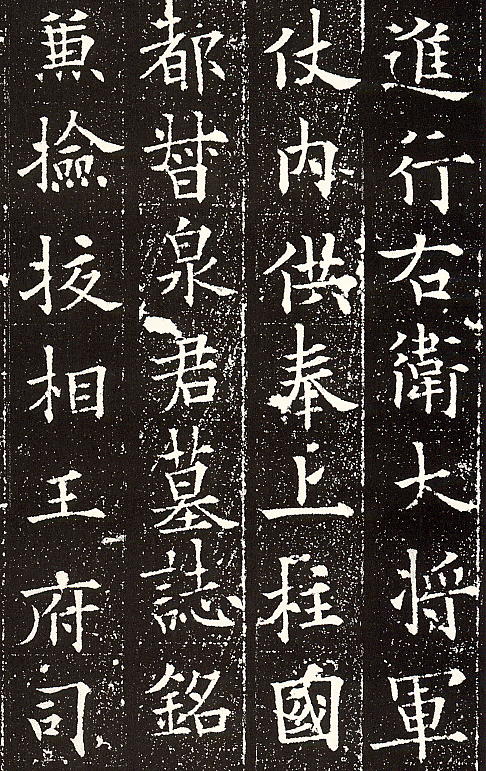 進行右衛大将軍
仗内供奉上柱國
都督泉君墓誌銘
兼撿挍相王府司